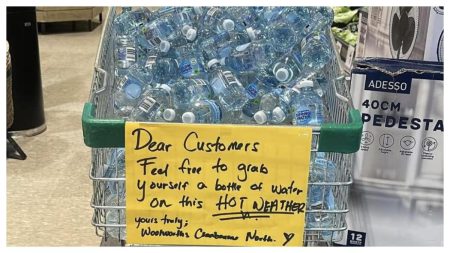 Dear Customers
Feel free to grab
yourself a bottle of water
on this HOT WEATHER
yours truly;
Woolworths Cranbourne North.
ADESSO
40CM
PEDESTA
12